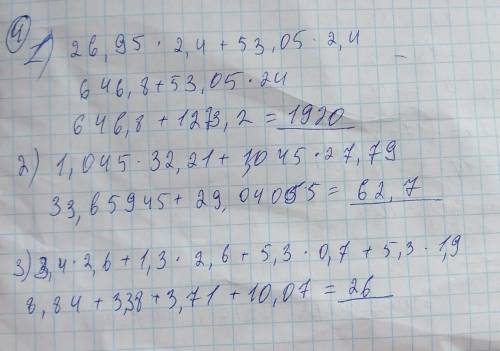 4
1) 26,95 · 2,4 + 53,05 · 2,4
646,8 + 53,05 · 24
646,8 + 1273,2 = 1920
2) 1,045 · 32,21 + 1,045 · 27,79
33,65945 + 29,04055 = 62,7
3) 3,4 · 2,6 + 1,3 · 2,6 + 5,3 · 0,7 + 5,3 · 1,9
8,84 + 3,38 + 3,71 + 10,07 = 26